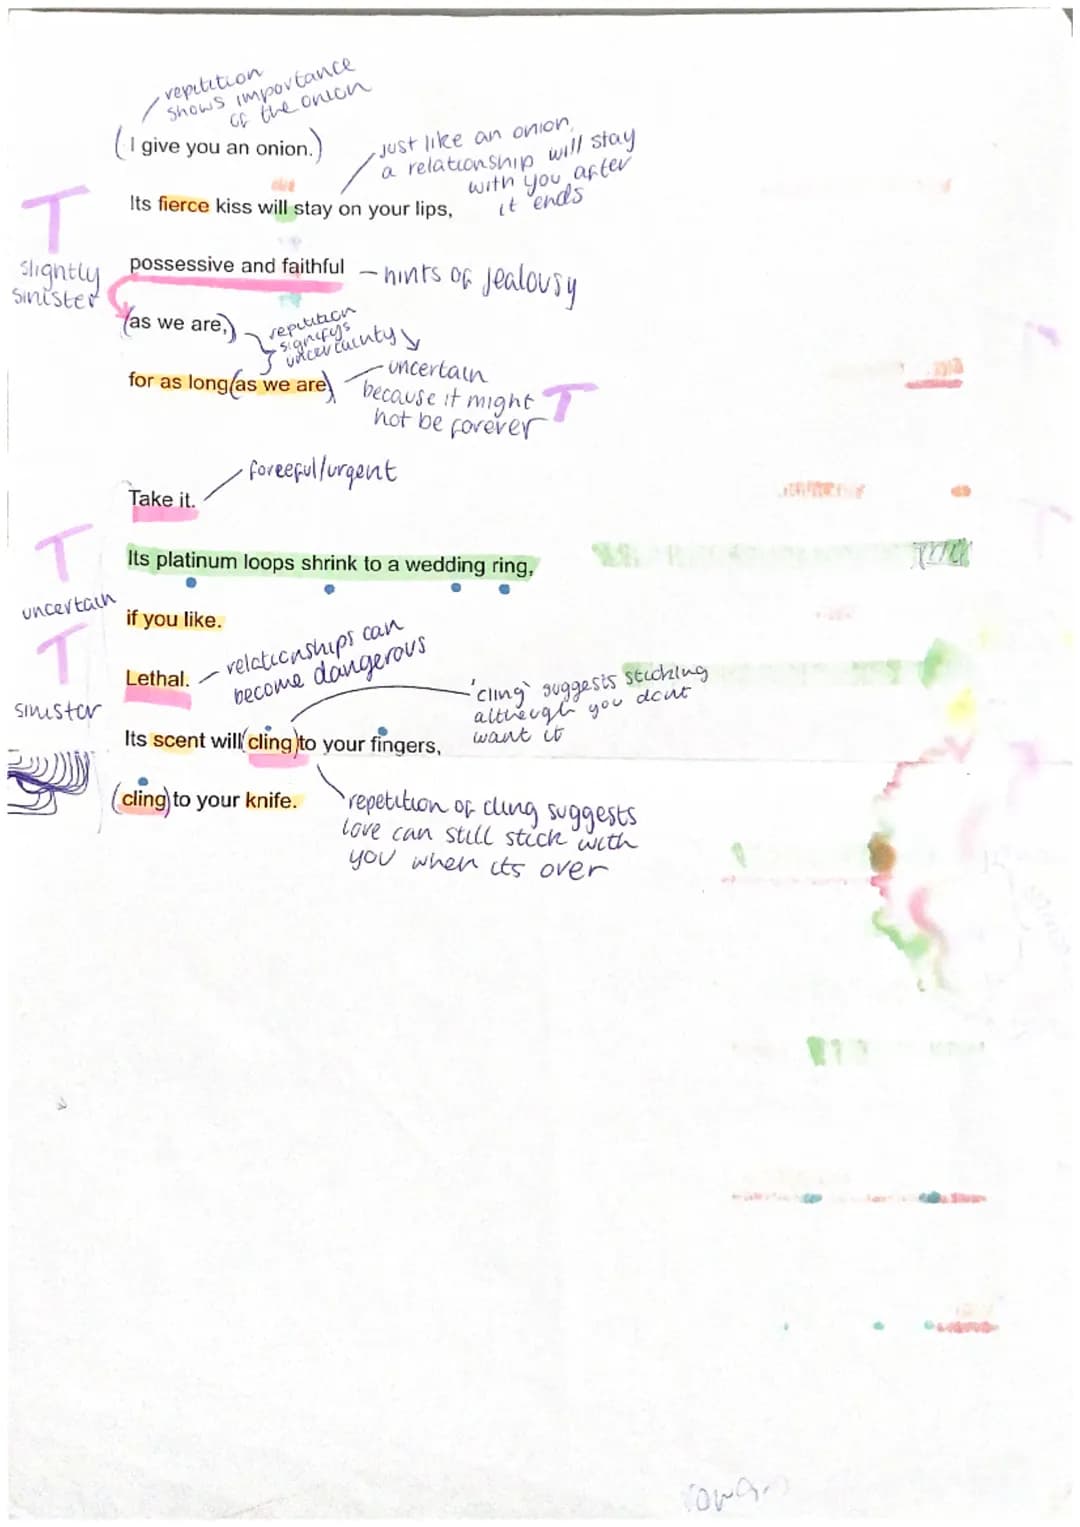 repitition
shows importance
of the onion
(I give you an onion.)
just like an onion,
a relationship will stay
with you after
it ends
Its fierce kiss will stay on your lips,
T
slightly
sinister
possessive and faithful
- hints of jealousy
(as we are,)
repitition
signifys
uncertainty
for as long (as we are)
uncertain
because it might
not be forever
T
forceful/urgent
Take it.
T
Its platinum loops shrink to a wedding ring,
uncertain
if you like.
T
sinister
Lethal.
relationships can
become dangerous
'cling' suggests sticking
although you dont
want it
Its scent will (cling) to your fingers,
(cling) to your knife.
repetition of cling suggests
love can still stick with
you when its over